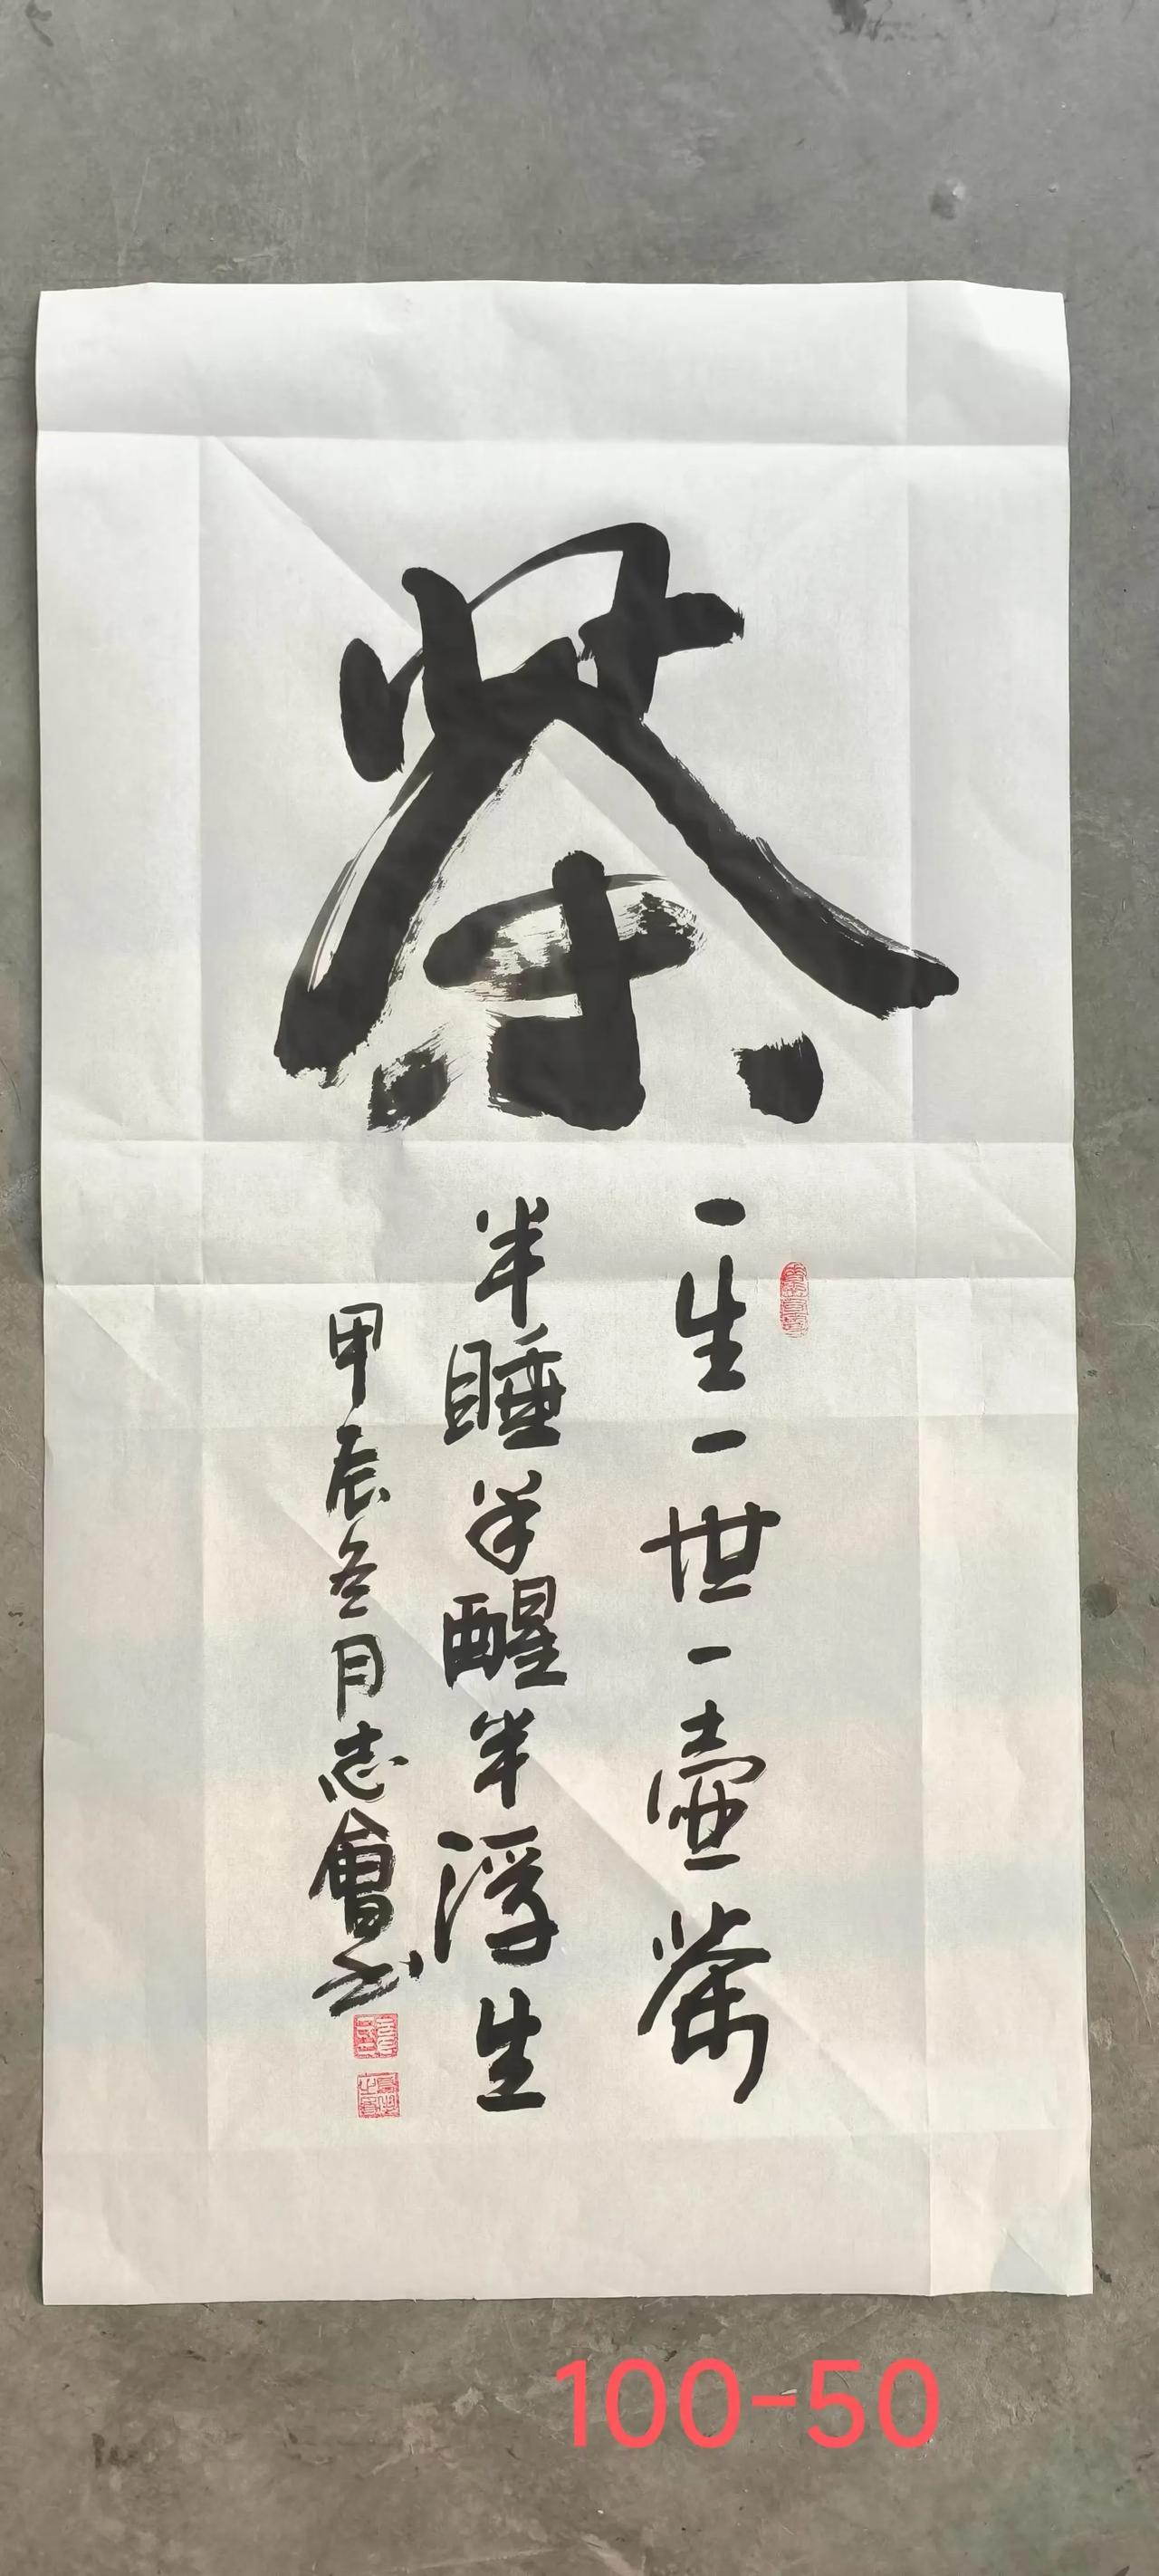 茶
一生一世一壶茶
半睡半醒半浮生
甲辰冬月志會书
100-50